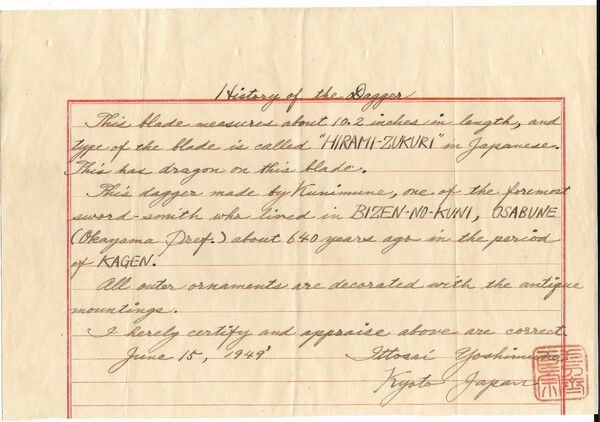 History of the Dagger
This blade measures about 10.2 inches in length, and
type of the blade is called "HIRAMI-ZUKURI" in Japanese.
This has dragon on this blade.
This dagger made by Kunimune, one of the foremost
sword-smith who lived in BIZEN-NO-KUNI, OSABUNE
(Okayama Pref.) about 640 years ago in the period
of KAGEN.
All outer ornaments are decorated with the antique
mountings.
I hereby certify and appraise above are correct.
June 15, 1949
Ittosai Yoshimune
Kyoto Japan